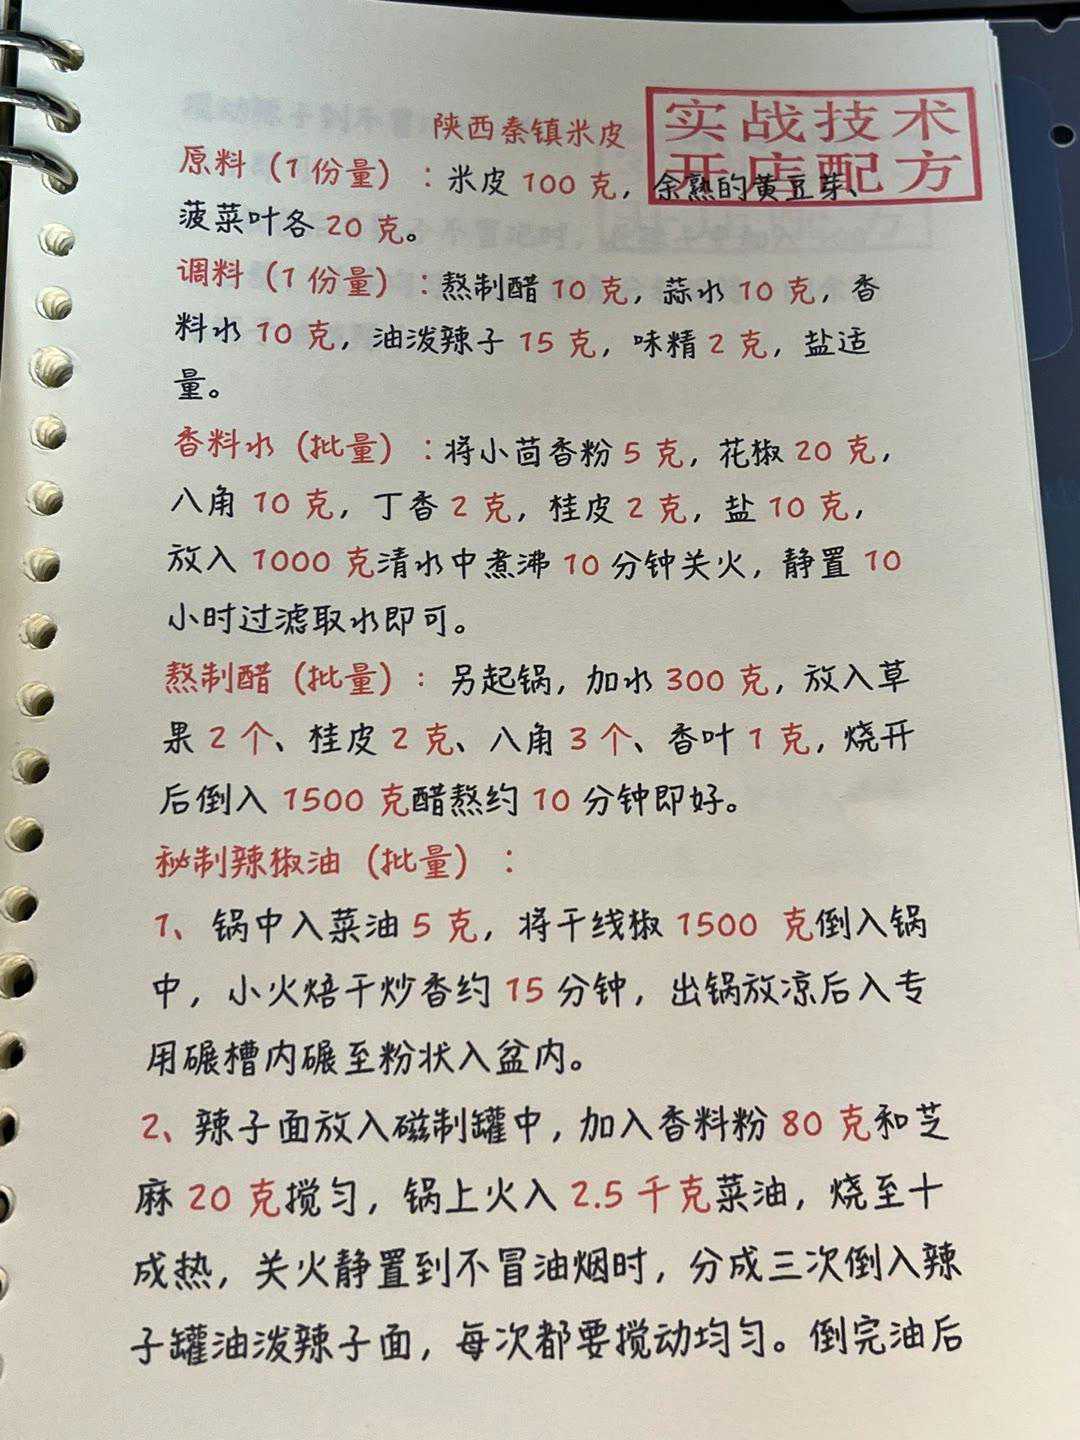 陕西秦镇米皮
实战技术
开店配方
原料（1份量）：米皮100克，余熟的黄豆芽、
菠菜叶各20克。
调料（1份量）：熬制醋10克，蒜水10克，香
料水10克，油泼辣子15克，味精2克，盐适
量。
香料水（批量）：将小茴香粉5克，花椒20克，
八角10克，丁香2克，桂皮2克，盐10克，
放入1000克清水中煮沸10分钟关火，静置10
小时过滤取水即可。
熬制醋（批量）：另起锅，加水300克，放入草
果2个、桂皮2克、八角3个、香叶1克，烧开
后倒入1500克醋熬约10分钟即好。
秘制辣椒油（批量）：
1、锅中入菜油5克，将干线椒1500克倒入锅
中，小火焙干炒香约15分钟，出锅放凉后入专
用碾槽内碾至粉状入盆内。
2、辣子面放入磁制罐中，加入香料粉80克和芝
麻20克搅匀，锅上火入2.5千克菜油，烧至十
成热，关火静置到不冒油烟时，分成三次倒入辣
子罐油泼辣子面，每次都要搅动均匀。倒完油后